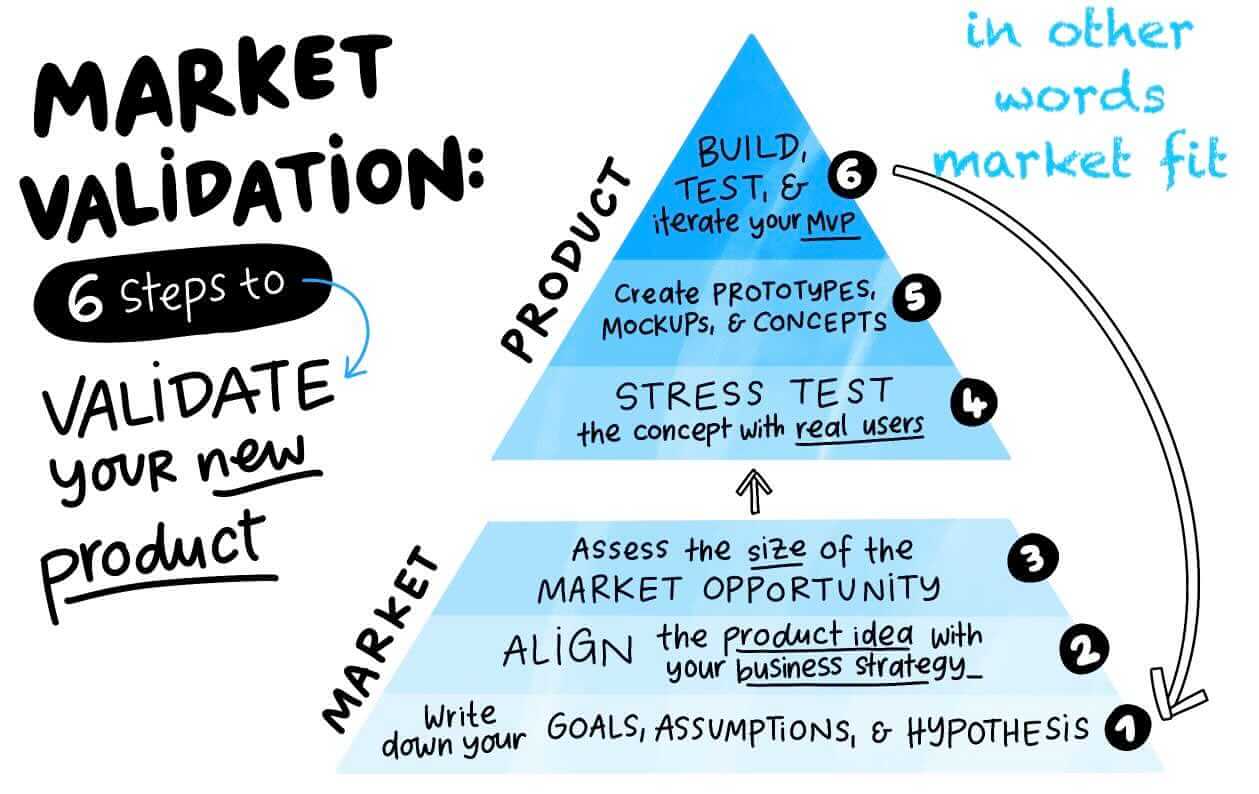 MARKET
VALIDATION:
6 Steps to
VALIDATE
your new
product
in other
words
market fit
PRODUCT
BUILD,
TEST, &
iterate your MVP
6
Create PROTOTYPES,
MOCKUPS, & CONCEPTS
5
STRESS TEST
the concept with real users
4
MARKET
Assess the size of the
MARKET OPPORTUNITY
3
ALIGN the product idea with
your business strategy_
2
Write
down your GOALS, ASSUMPTIONS, & HYPOTHESIS
1